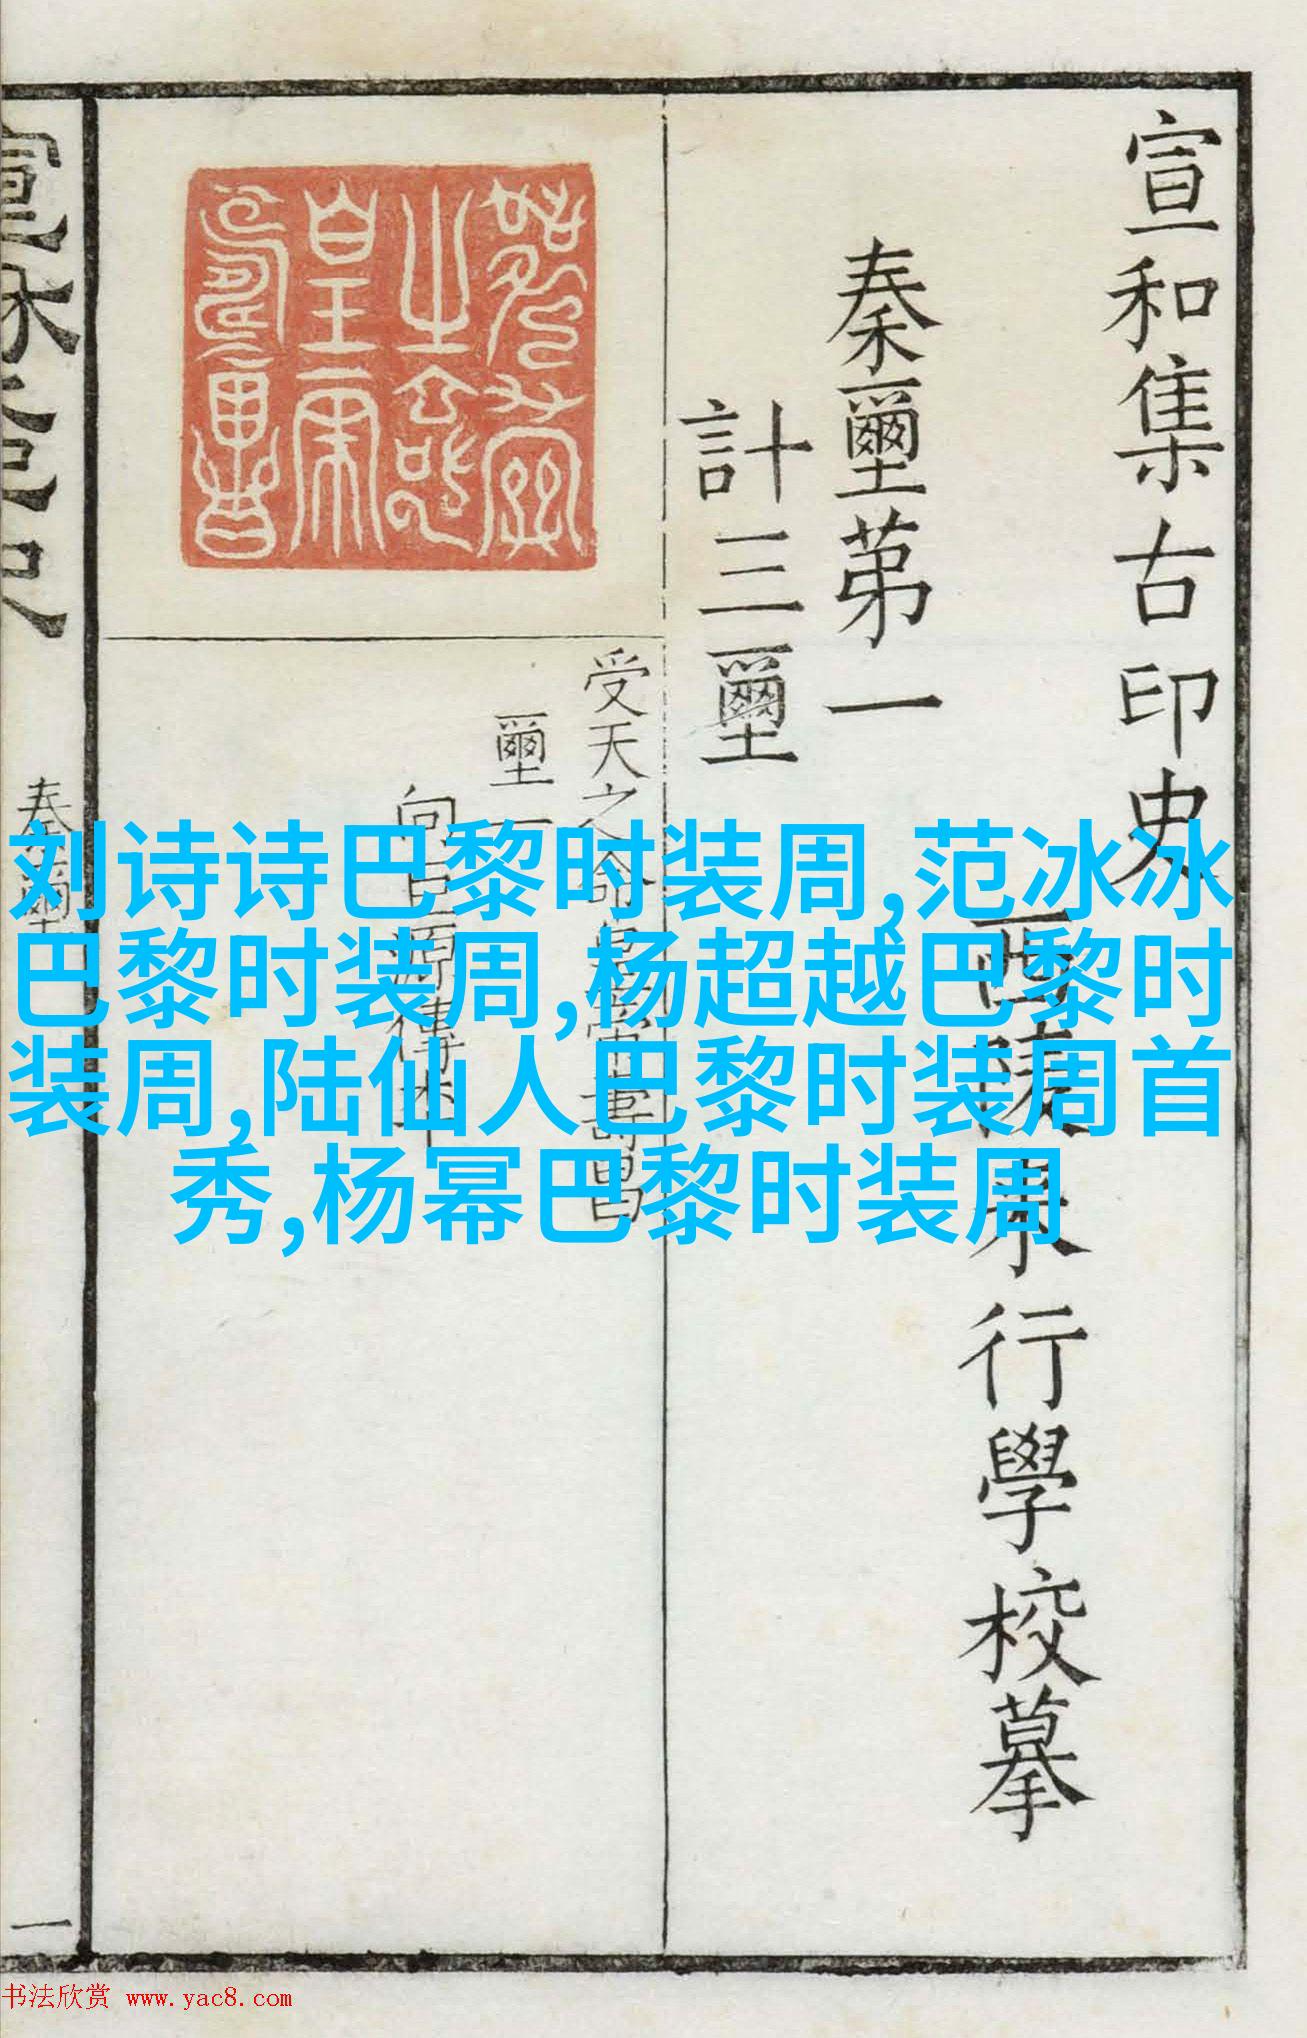 宣和集古印史
西陵来行學校摹
秦璽第一
計三璽
受天之命皇帝壽昌
璽一
向巨源傳本
秦璽
一
刘诗诗巴黎时装周,范冰冰
巴黎时装周,杨超越巴黎时
装周,陆仙人巴黎时装周首
秀,杨幂巴黎时装周
书法欣赏 www.yac8.com